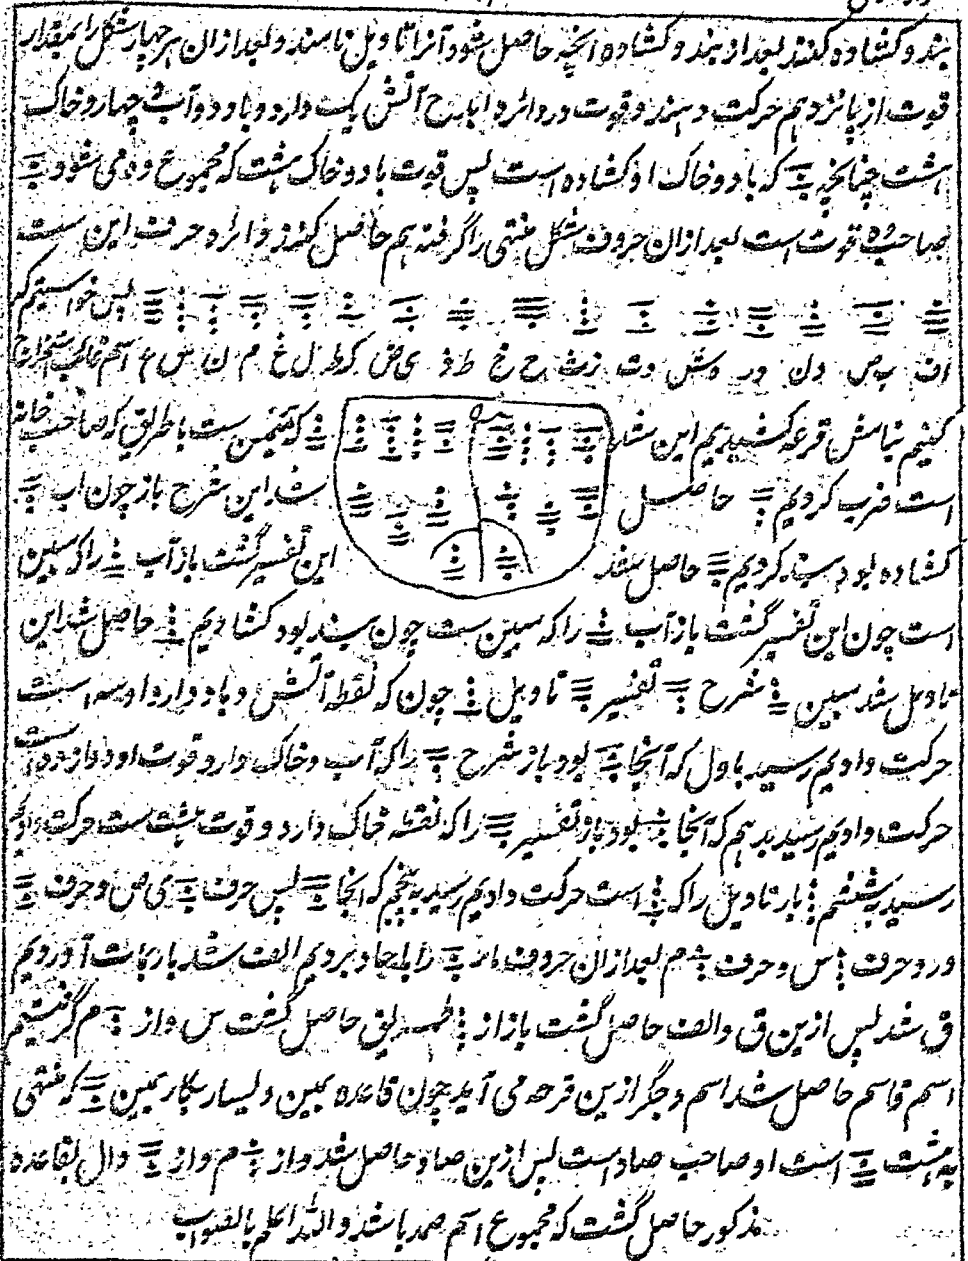 بند و کشاده کنند بعد از بند و کشاده آنچه حاصل شود آنرا تاویل نامند و بعد ازان هر چهار شکل را بمقدار
قوت از پانزدهم حرکت دهند و قوت در دائره ابدح آتش یک دارد و باد دو آب چهار و خاک
هشت چنانچه که باد و خاک او کشاده است پس قوت باد دو خاک هشت که مجموع ده می شود
صاحب ده قوت است بعد ازان حروف شکل منتهی را گرفته اسم حاصل کنند و دائره حرف این ست
پس خواستیم که
اف ب ص د ل و ر ه ش د ت ز ث ح خ ط ذ ی ض ک ظ ل غ م ن س ع اسم غائب استخراج
کنیم بنامش قرعه کشیدیم این شد که یمین ست باطریق که صاحب خانه
است ضرب کردیم حاصل شد این شرح باز چون آب
کشاده بود بسته کردیم حاصل شد این تفسیر گشت باز آب را که یمین
است چون این تفسیر گشت باز آب را که یمین ست چون بسته بود کشادیم حاصل شد این
تاویل شد یمین شرح تفسیر تاویل چون که نقطه آتش و باد دارد او سه است
حرکت دادیم رسید باول که آنجا بود باز شرح را که آب و خاک دارد قوت او دوازده است
حرکت دادیم رسید بدهم که آنجا بود باز تفسیر را که نقطه خاک دارد و قوت هشت ست حرکت دادیم
رسید بششم باز تاویل را که است حرکت دادیم رسید به پنجم که آنجا پس حرف ی ض و حرف
و ر و حرف س و حرف م بعد ازان حروف از را بآحاد بردیم الف شد بازبمآت آوردیم
ق شد پس ازین ق و الف حاصل گشت باز از طریق حاصل گشت س و از م گرفتیم
اسم قاسم حاصل شد اسم دیگر ازین قرعه می آید چون قاعده یمین و یسار بکار یمین که منتهی
به هشت است او صاحب صاد است پس ازین صاد حاصل شد و از م و از دال بقاعده
مذکور حاصل گشت که مجموع اسم صمد باشد والله اعلم بالصواب